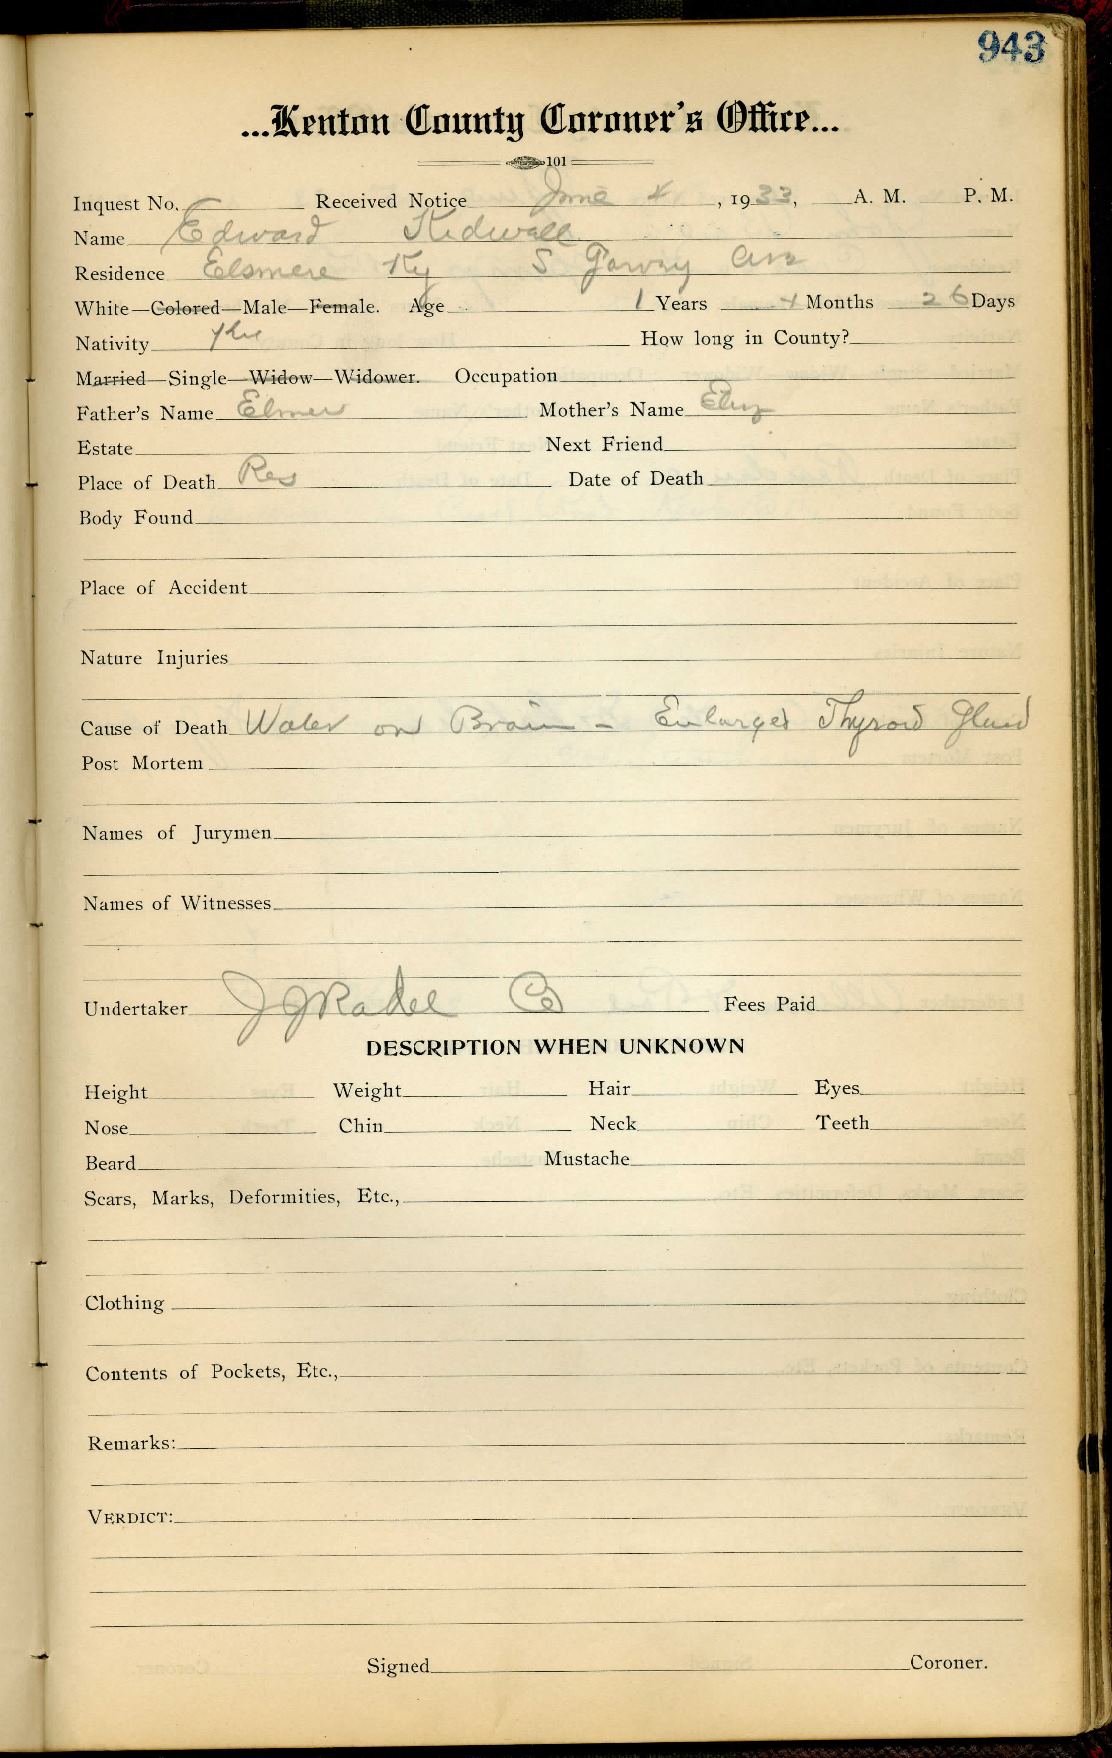 943
...Kenton County Coroner's Office...
101
Inquest No. Received Notice June 4, 1933, A. M. P. M.
Name Edward Kidwell
Residence Elsmere Ky S Garvey Ave
White—Colored—Male—Female. Age 1 Years 4 Months 26 Days
Nativity How long in County?
Married—Single—Widow—Widower. Occupation
Father's Name Elmer Mother's Name Eliz
Estate Next Friend
Place of Death Res Date of Death
Body Found
Place of Accident
Nature Injuries
Cause of Death Water on Brain - Enlarged Thyroid Gland
Post Mortem
Names of Jurymen
Names of Witnesses
Undertaker J J Radel Co Fees Paid
DESCRIPTION WHEN UNKNOWN
Height Weight Hair Eyes
Nose Chin Neck Teeth
Beard Mustache
Scars, Marks, Deformities, Etc.,
Clothing
Contents of Pockets, Etc.,
Remarks:
VERDICT:
Signed Coroner.